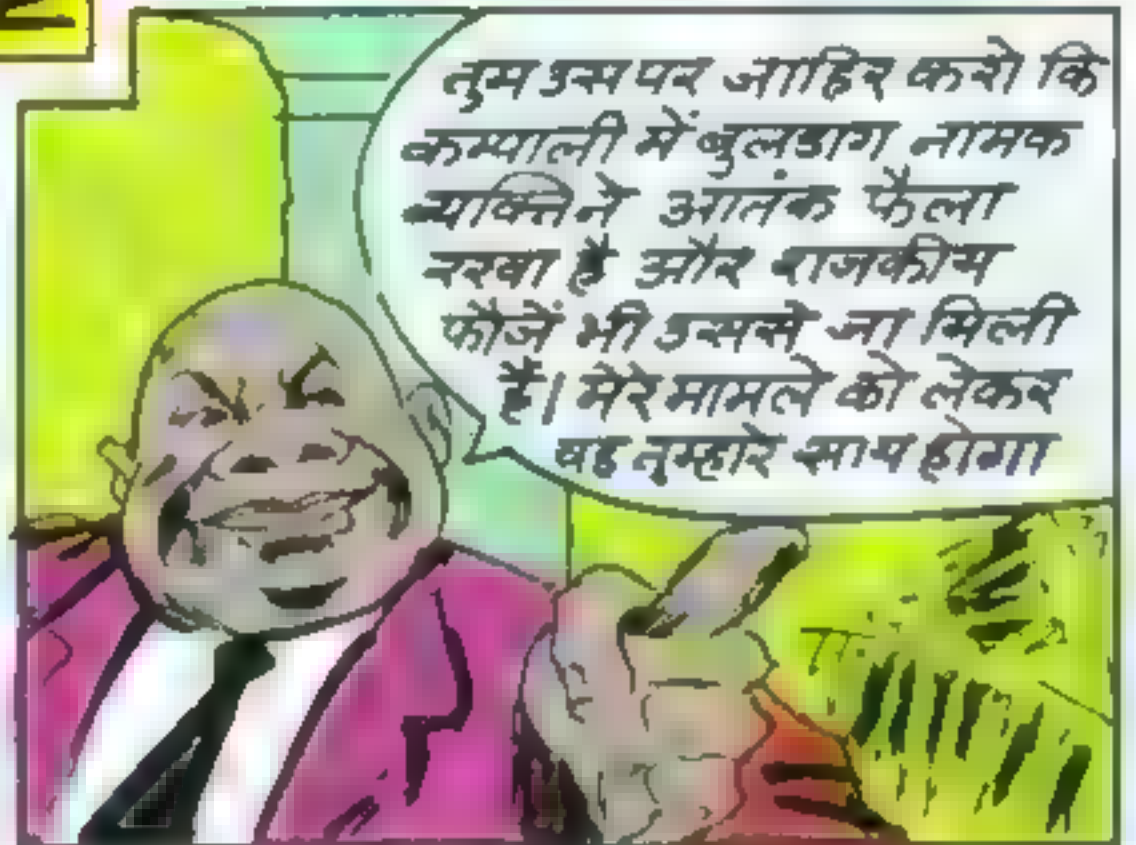 तुम उस पर जाहिर करो कि
कम्पाली में बुलडाग नामक
व्यक्ति ने आतंक फैला
रखा है और राजकीय
फौजें भी उससे जा मिली
हैं। मेरे मामले को लेकर
वह तुम्हारे साथ होगा